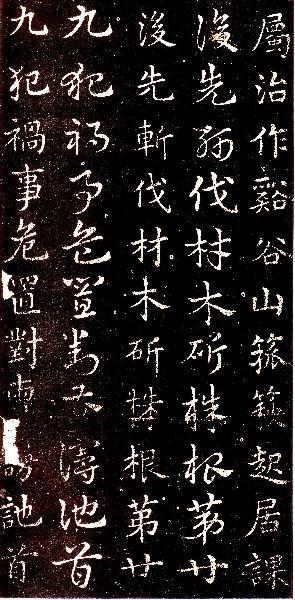 屬治作谿谷山箛篍起居課
後先斬伐材木斫株根第廿
後先斬伐材木斫株根第廿
九犯禍事危置對曹謾訑首
九犯禍事危置對曹訑首